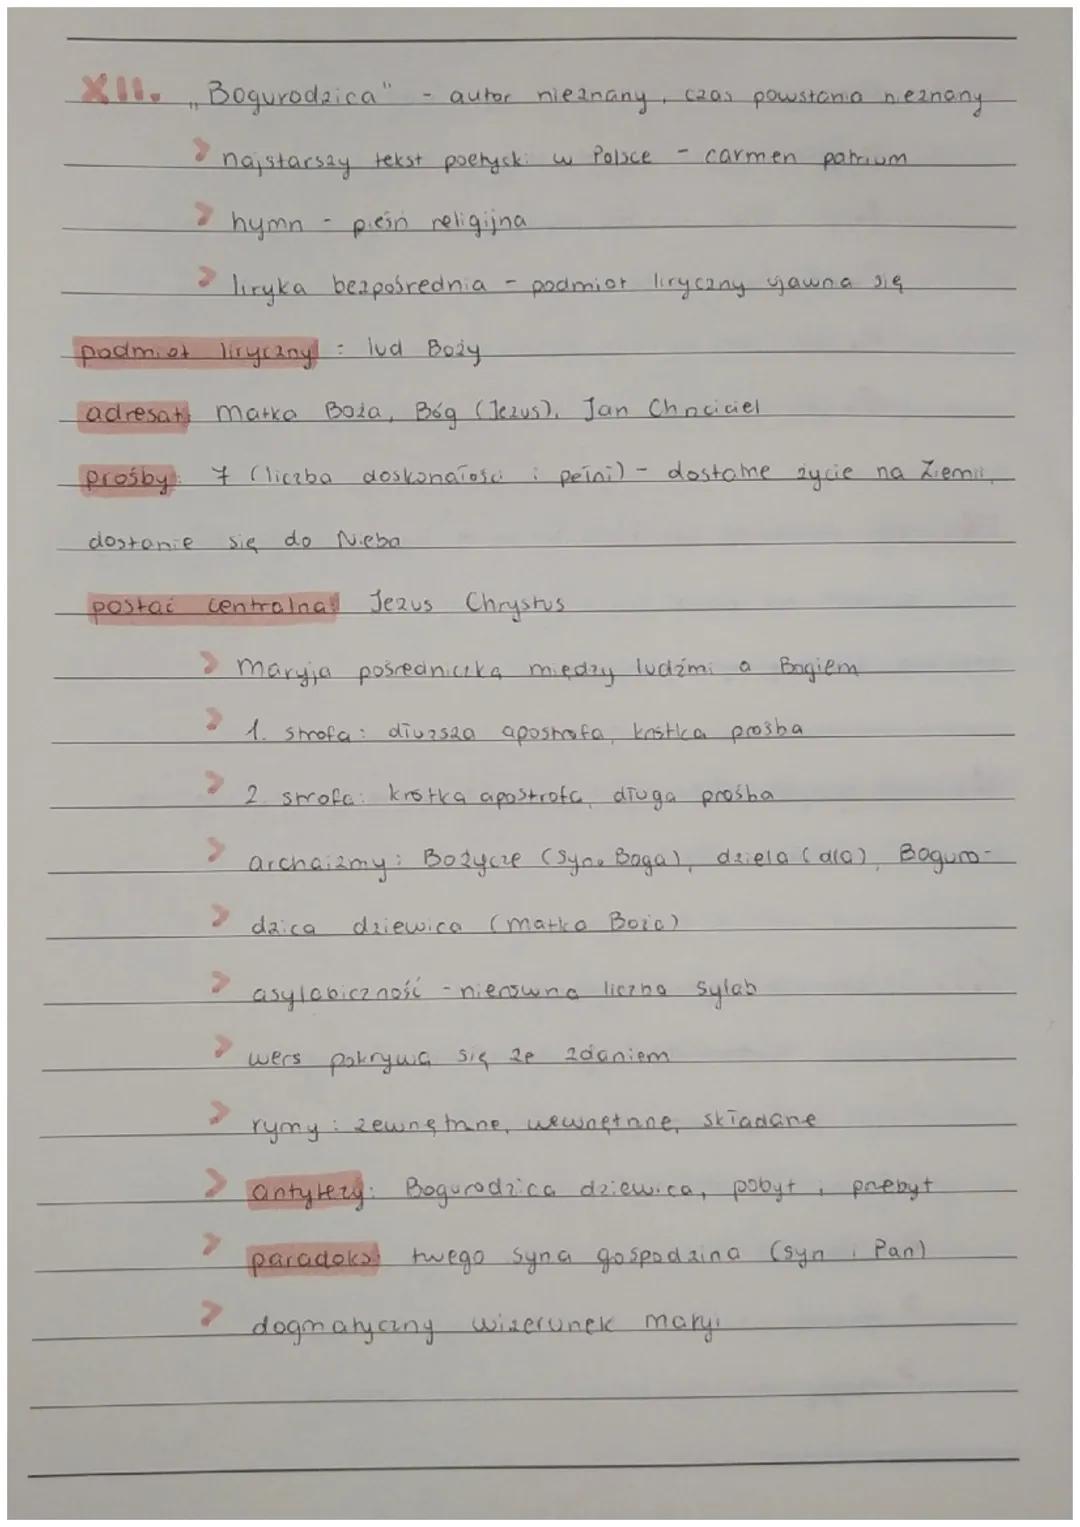 XII. „Bogurodzica" - autor nieznany, czas powstania nieznany
> najstarszy tekst poetycki w Polsce - carmen patrium
> hymn - pieśń religijna
> liryka bezpośrednia - podmiot liryczny ujawna się
podmiot liryczny: lud Boży
adresat: Matka Boża, Bóg (Jezus), Jan Chrzciciel
prośby: 7 (liczba doskonałości i pełni) - dostatnie życie na Ziemii,
dostanie się do Nieba
postać centralna: Jezus Chrystus
> Maryja pośredniczką między ludźmi a Bogiem
> 1. strofa: dłuższa apostrofa, krótka prośba
> 2. strofa: krótka apostrofa, długa prośba
> archaizmy: Bożycze (Syna Boga), dziela (dla),Boguro-
> dzica dziewica (Matka Boża)
> asylabiczność - nierówna liczba sylab
> wers pokrywa się ze zdaniem
> rymy: zewnętrzne, wewnętrzne, składane
> antytezy: Bogurodzica dziewica, pobyt i przebyt
> paradoks: twego syna gospodzina (syn i Pan)
> dogmatyczny wizerunek Maryi